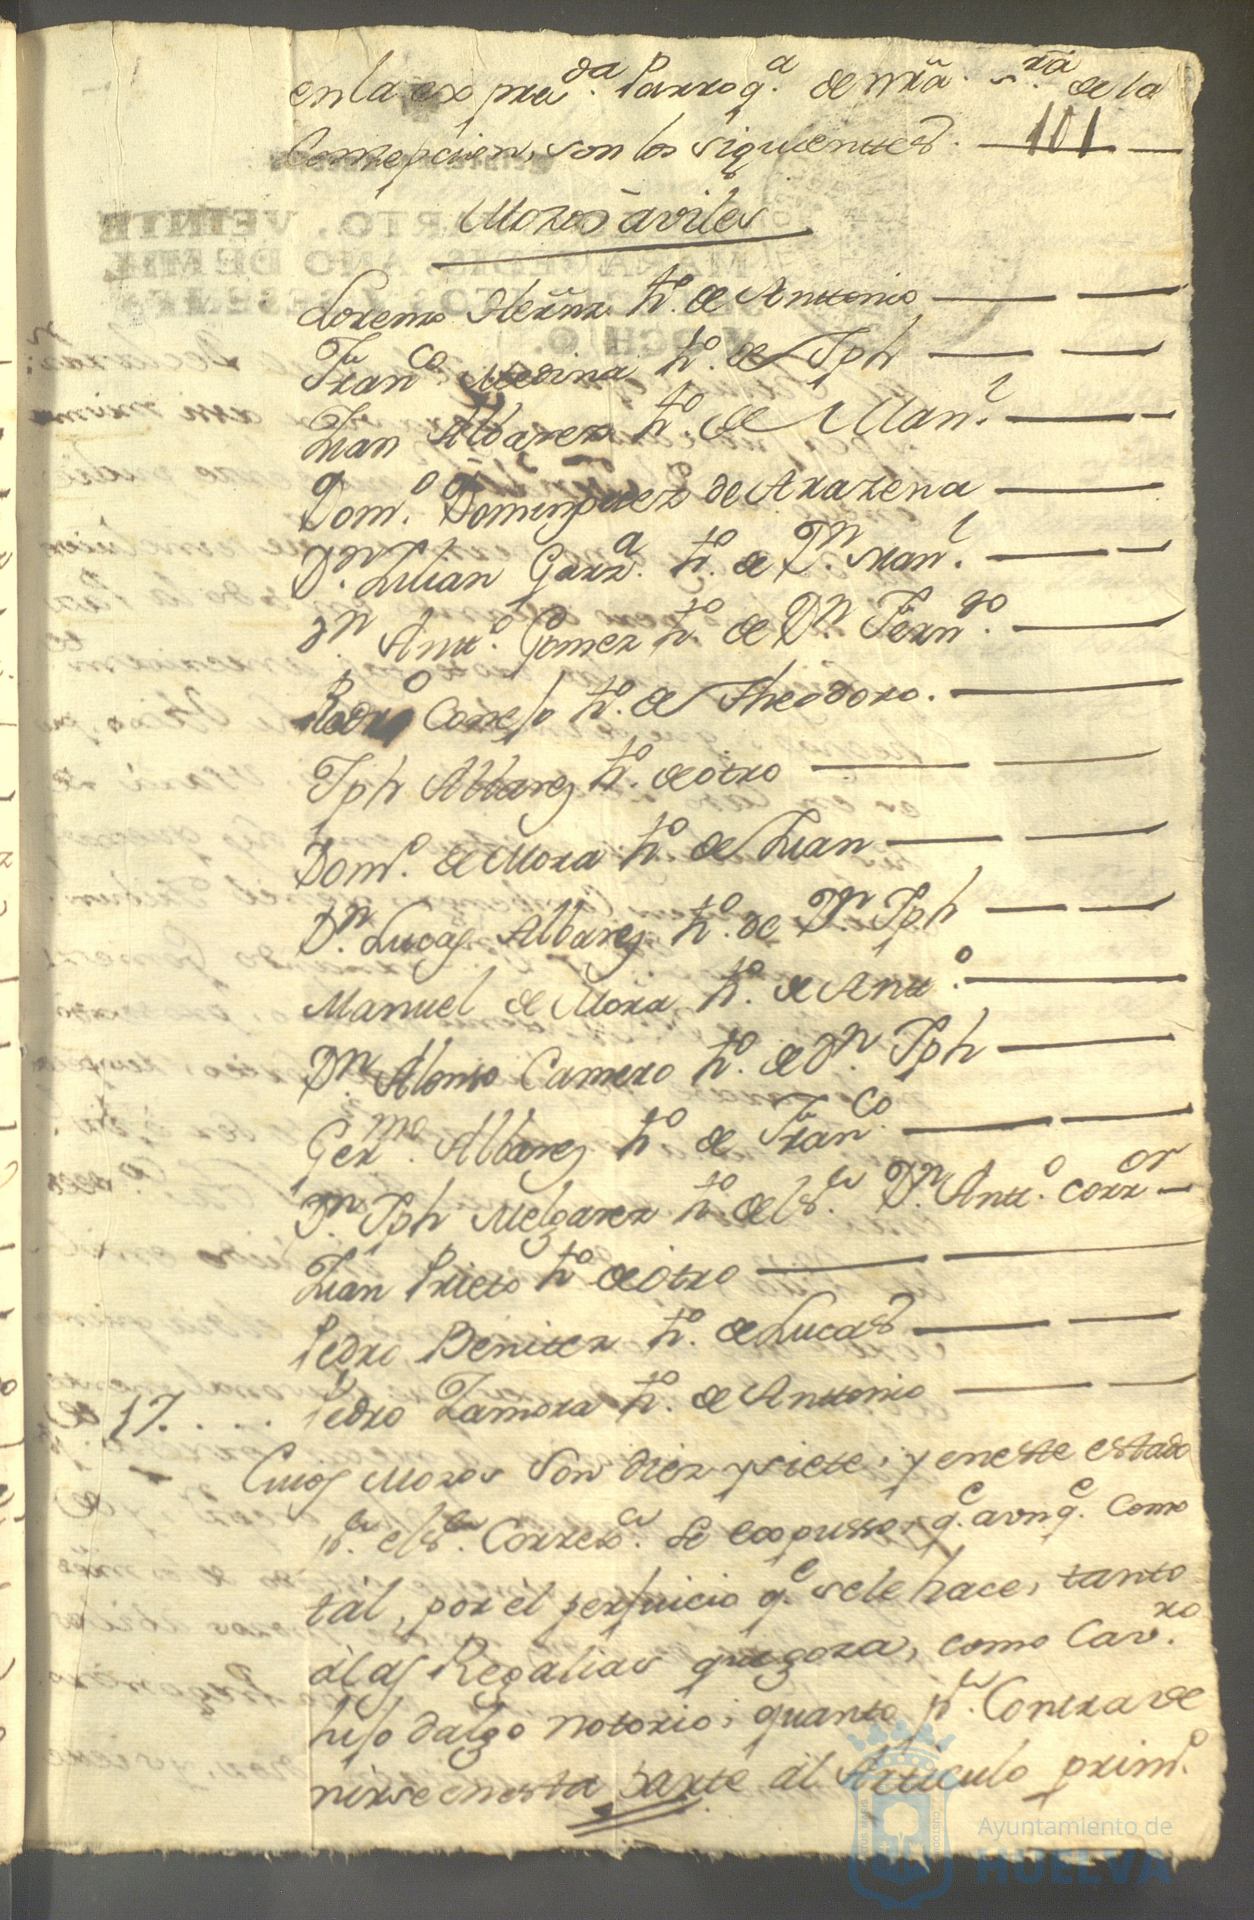 en la expre.da Parroq.a de nra. s.ra de la
Comcepcion, son los siguienttes. 101
Mozos àviles
Lorenzo Hernz. h.o de Anttonio
Fran.co Medina h.o de Jph
Juan Albarez h.o de Man.l
Dom.o Dominguez de Arazena
D.n Julian Garz.a h.o de D.n Man.l
D.n Antt.o Gomez h.o de D.n Fern.do
Rodr.o Conejo h.o de Theodoro.
Jph Albarez h.o de otro
Dom.o de Mora h.o de Juan
D.n Lucas Albarez h.o de D.n Jph
Manuel de Mora h.o de Antt.o
D.n Alonso Camero h.o de D.n Jph
Ger.mo Albarez h.o de Fran.co
D.n Jph Melgarez h.o del S.r D.n Antt.o Corr.or
Juan Prieto h.o de otro
Pedro Benitez h.o de Lucas
17. . . . Pedro Zamora h.o de Anttonio
Cuios Mozos son diez y siete; y en este estado
p.r el S.r Correx.r se expusso, q.e aunq.e como
tàl, por èl perjuicio q.e se le hace, tanto
à las Regalias que goza, como Cav.ro
hijo dalgo notorio; quanto p.r Contrave
nirse en esta parte àl Artticulo prim.o
Ayuntamiento de
HUELVA